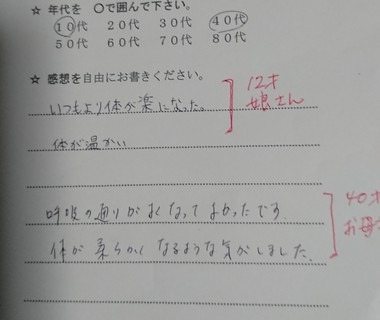 ☆ 年代を ○で囲んで下さい。
10代 20代 30代 40代
50代 60代 70代 80代
☆ 感想を自由にお書きください。
いつもより体が楽になった。
12才
娘さん
体が温かい
呼吸の通りがよくなってよかったです。
40才
お母
体が柔らかくなるような気がしました。